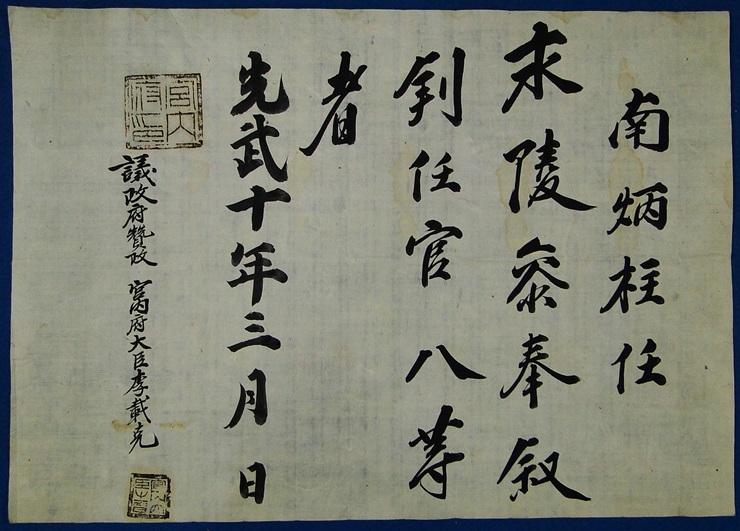 南炳柱任
永陵參奉叙
判任官八等
者
光武十年三月 日
議政府贊政 宮內府大臣李載克
宮內府印